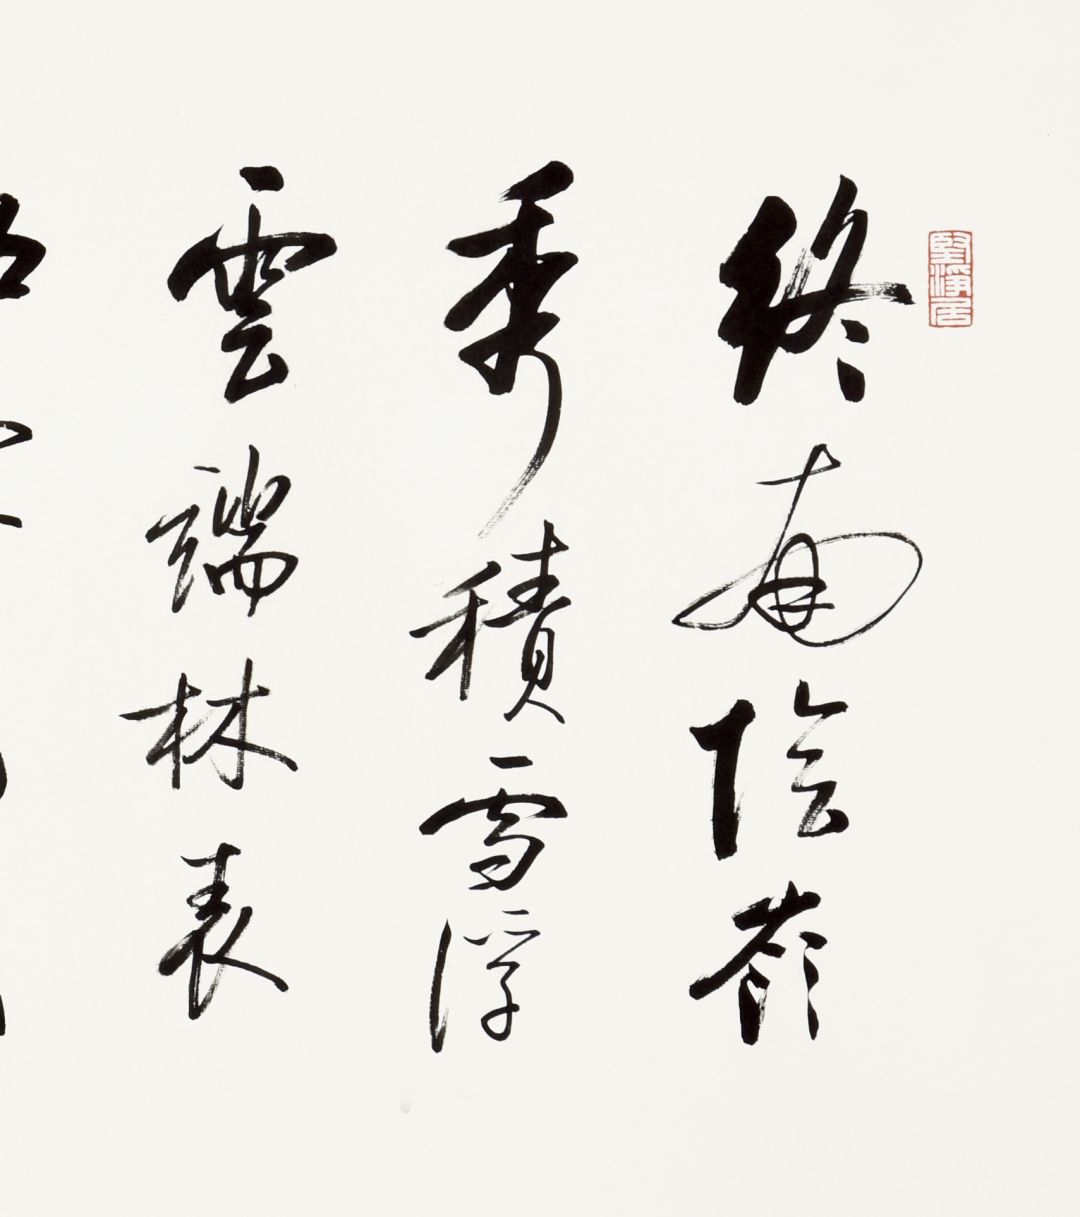 堅淨居
終南陰嶺
秀積雪浮
雲端林表